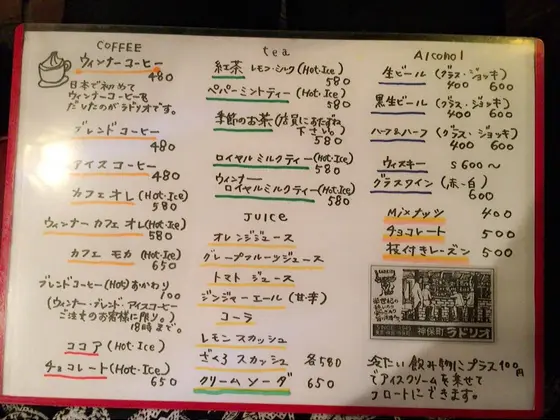 COFFEE
ウィンナーコーヒー
480
日本で初めて
ウィンナーコーヒーを
だしたのがラドリオです。
ブレンドコーヒー
480
アイスコーヒー
480
カフェオレ(Hot・Ice)
580
ウィンナーカフェオレ(Hot・Ice)
580
カフェモカ(Hot・Ice)
650
ブレンドコーヒー(Hot)おかわり
100
(ウィンナー・ブレンド・アイスコーヒー
ご注文のお客様に限り。)
18時まで。
ココア(Hot・Ice)
チョコレート(Hot・Ice)
650
tea
紅茶 レモン・ミルク(Hot・Ice)
580
ペパーミントティー(Hot・Ice)
580
季節のお茶(店員におたずね
下さい。)
580
ロイヤルミルクティー(Hot・Ice)
580
ウィンナー
ロイヤルミルクティー(Hot・Ice)
580
JUICE
オレンジジュース
グレープフルーツジュース
トマトジュース
ジンジャーエール(甘・辛)
コーラ
レモンスカッシュ
ざくろスカッシュ 各580
クリームソーダ 650
Alcohol
生ビール(グラス・ジョッキ)
400 600
黒生ビール(グラス・ジョッキ)
400 600
ハーフ&ハーフ(グラス・ジョッキ)
400 600
ウィスキー S600〜
グラスワイン(赤・白)
600
Mixナッツ 400
チョコレート 500
枝付きレーズン 500
SINCE 1949
神保町 ラドリオ
冷たい飲み物にプラス100円
でアイスクリームを乗せて
フロートにできます。